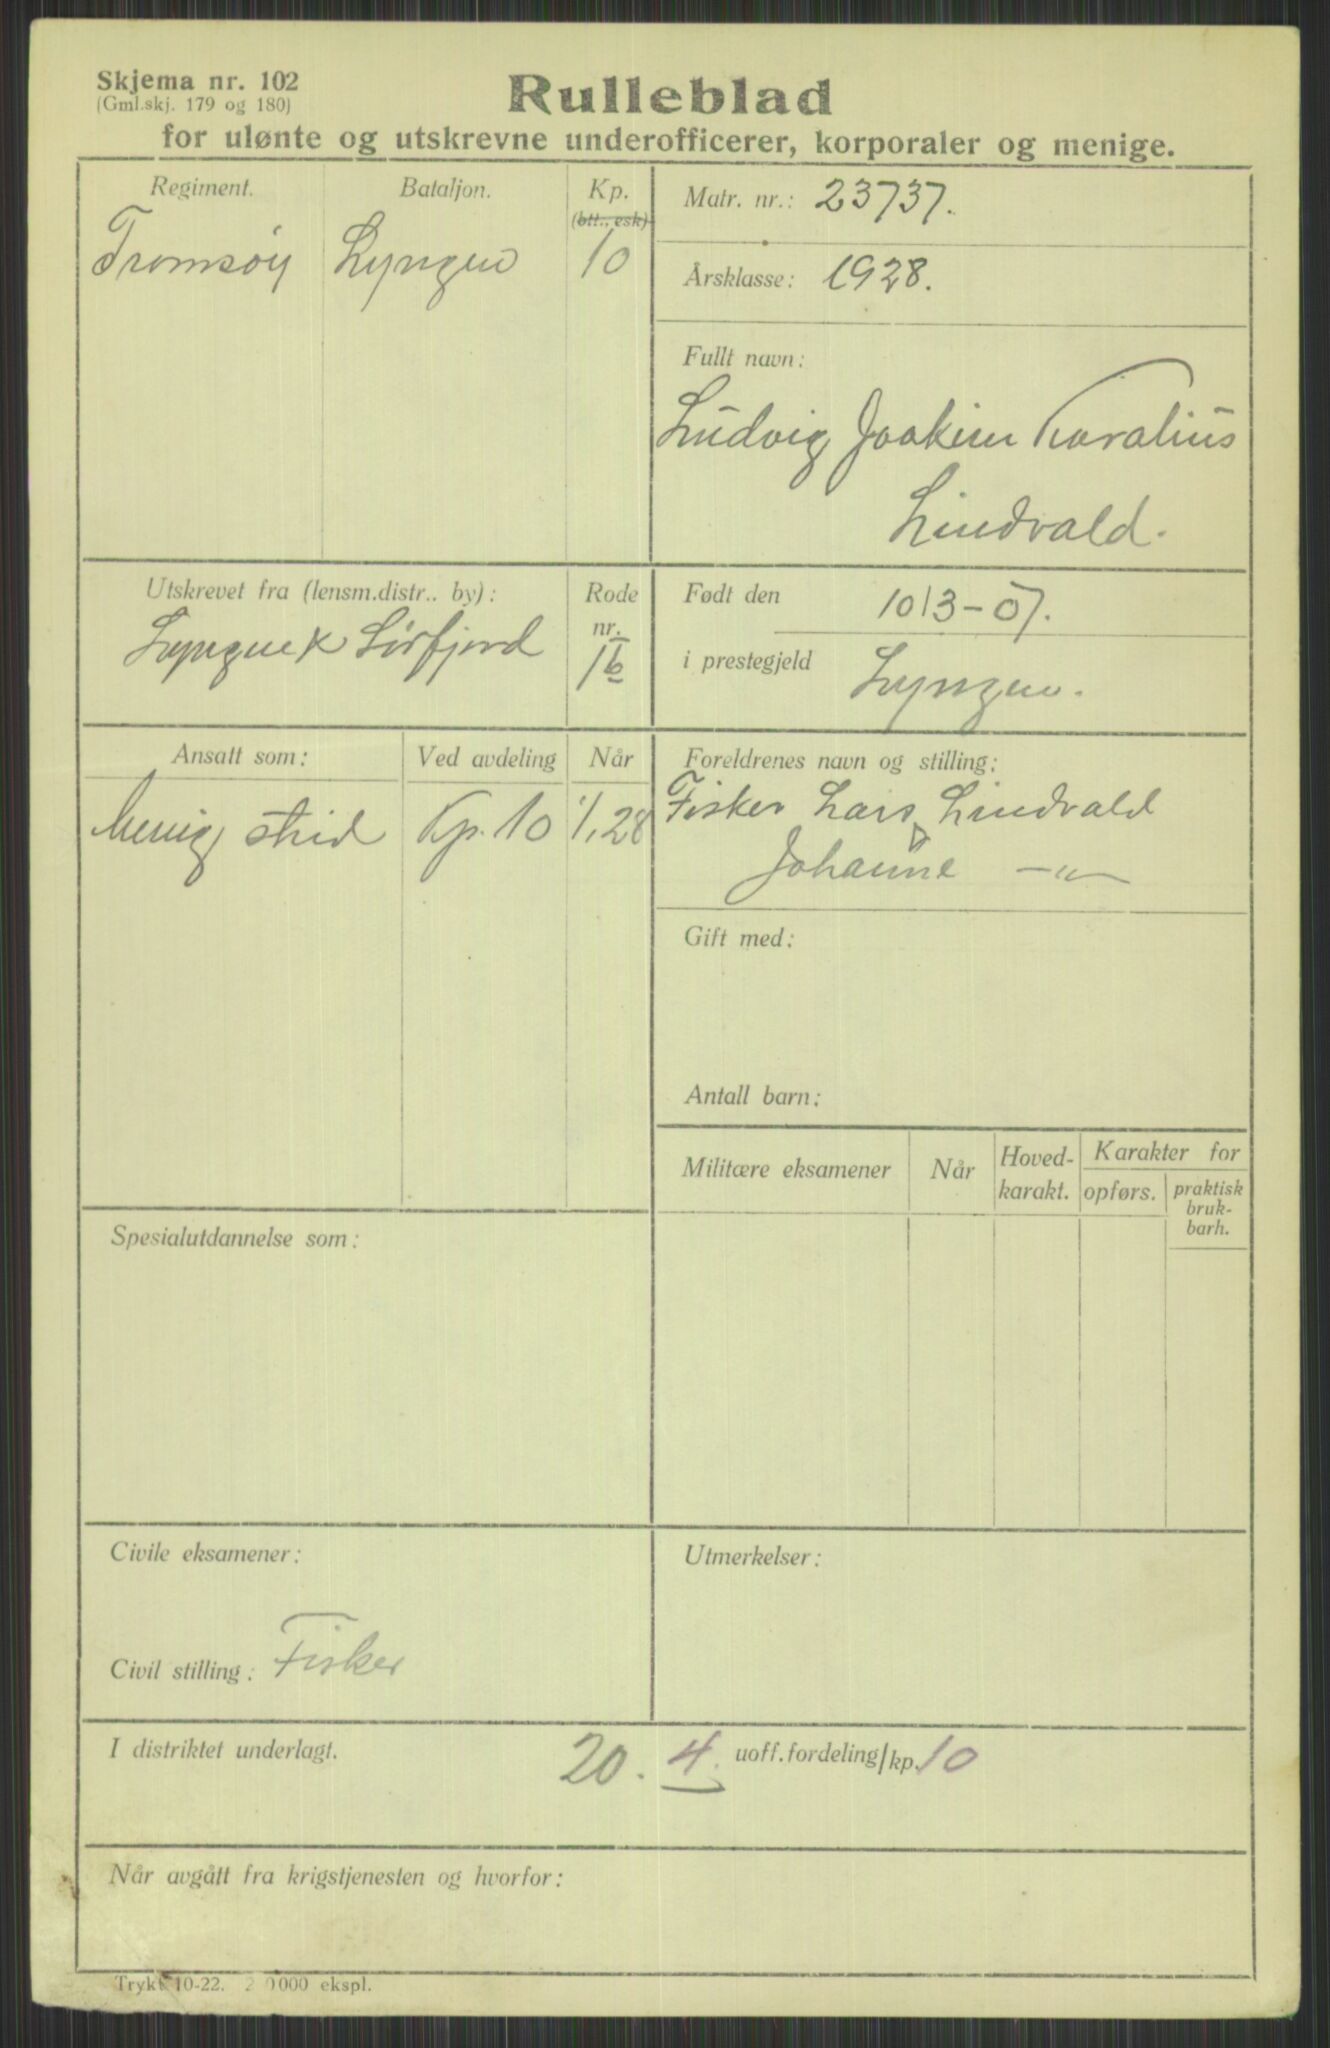 Skjema nr. 102
(Gml.skj. 179 og 180)
Rulleblad
for ulønte og utskrevne underofficerer, korporaler og menige.
Regiment.
Bataljon.
Kp.
(btt., esk)
Tromsøy
Lyngen
10
Matr. nr.: 23737.
Årsklasse: 1928.
Fullt navn:
Ludvig Joakim Koralius
Lindvald.
Utskrevet fra (lensm.distr.. by):
Lyngen Sørfjord
Rode
nr.
1b
Født den 10/3-07.
i prestegjeld Lyngen.
Ansatt som:
Ved avdeling
Når
Menig strid
Kp. 10
1/1 28
Foreldrenes navn og stilling:
Fisker Lars Lindvald
Johanne —"—
Gift med:
Antall barn:
Militære eksamener
Når
Hoved-
karakt.
Karakter for
opførs.
praktisk
bruk-
barh.
Spesialutdannelse som:
Civile eksamener:
Civil stilling: Fisker
Utmerkelser:
I distriktet underlagt. 20. 4. uoff.fordeling/kp. 10
Når avgått fra krigstjenesten og hvorfor:
Trykt 10-22. 2 0000 ekspl.